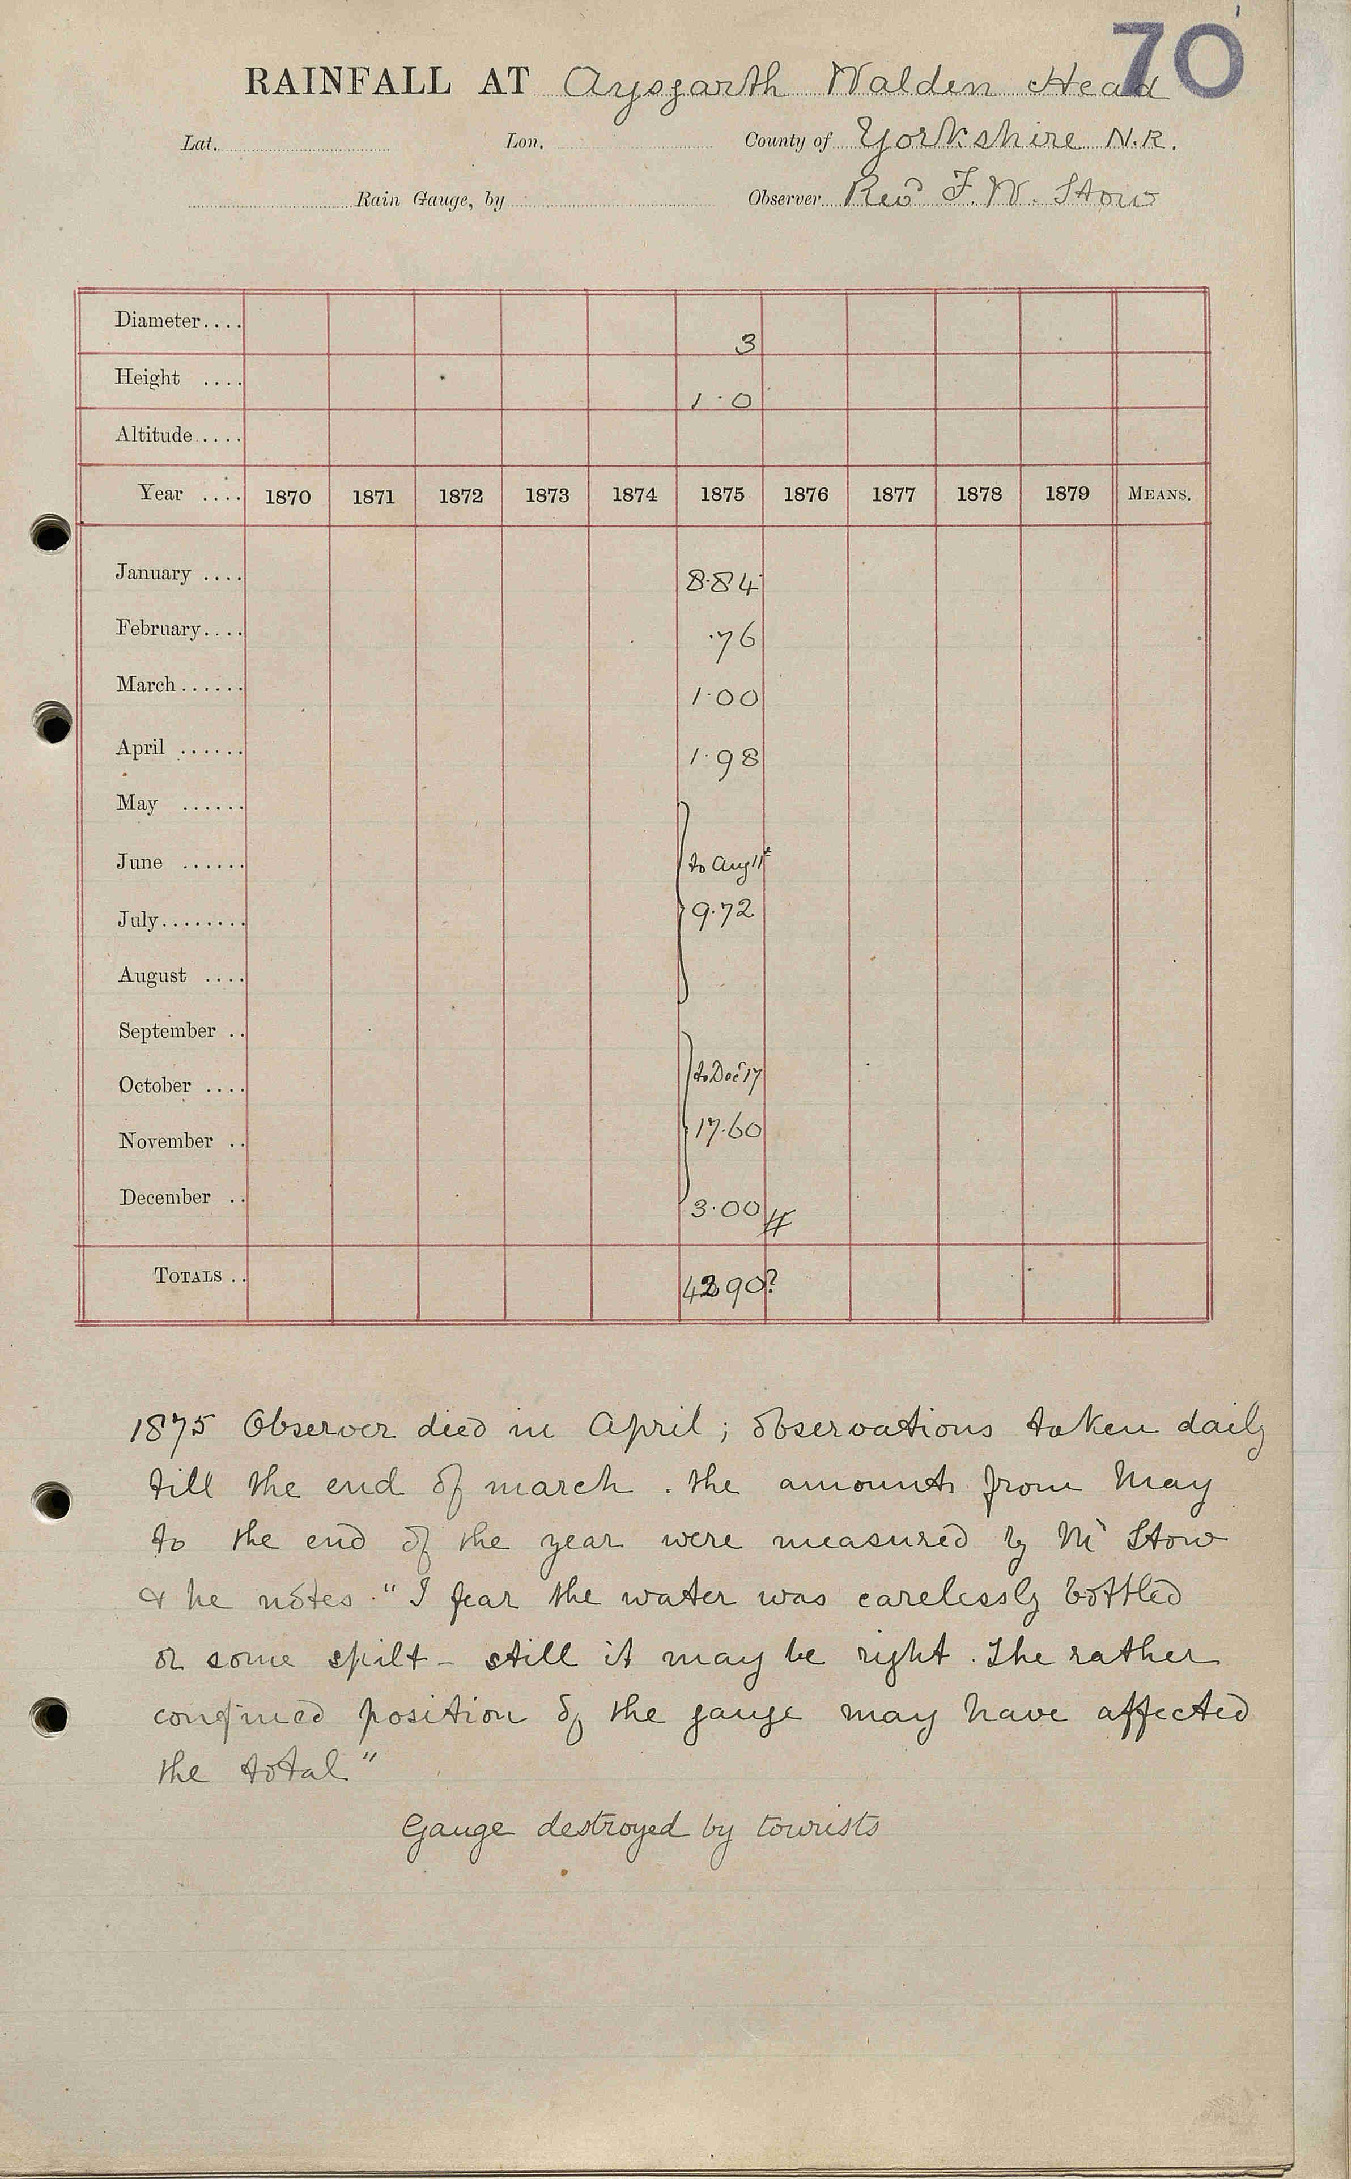 70
RAINFALL AT Aysgarth Walden Head
Lat. Lon. County of Yorkshire N.R.
Rain Gauge, by Observer Revd F. W. Stow
Diameter.... 3
Height .... 1.0
Altitude.....
Year .... 1870 1871 1872 1873 1874 1875 1876 1877 1878 1879 MEANS.
January .... 8.84
February.... .76
March...... 1.00
April ...... 1.98
May ......
June ...... to Aug 11t
July........ 9.72
August ....
September ..
October .... to Dec 17
November .. 17.60
December .. 3.00 #
TOTALS .. 4290?
1875 Observer died in April; observations taken daily
till the end of march. the amounts from May
to the end of the year were measured by Mr Stow
& he notes "I fear the water was carelessly bottled
or some spilt - still it may be right. The rather
confined position of the gauge may have affected
the total"
Gauge destroyed by tourists